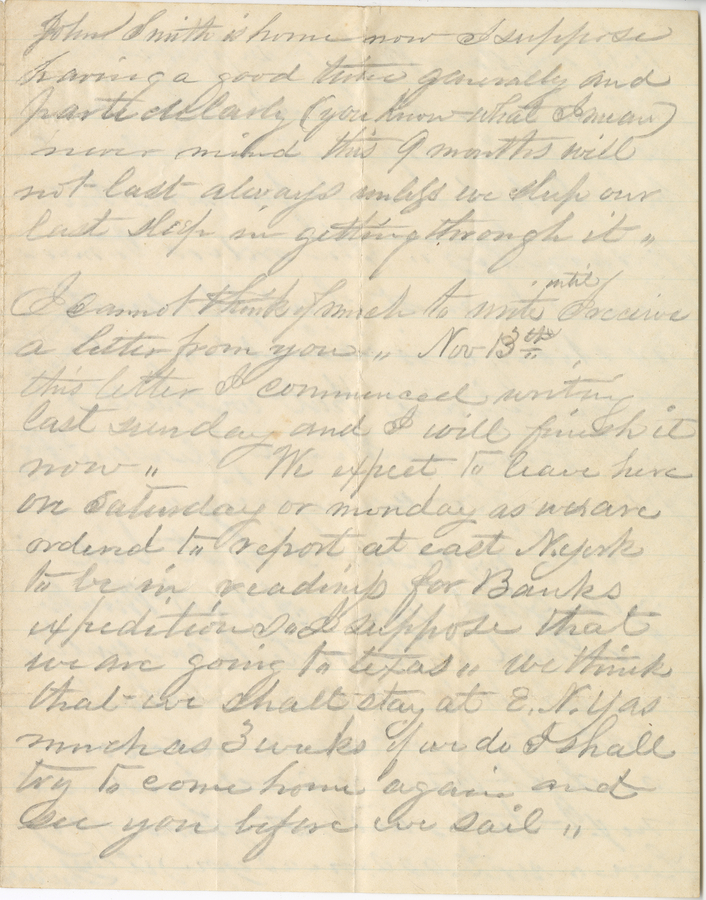 John Smith is home now I suppose
having a good time generally and
particularly (you know what I mean)
never mind this 9 months will
not last always unless we sleep our
last sleep in getting through it "
until
I cannot think of much to write I receive
a letter from you " Nov 13th "
this letter I commenced writing
last sunday and I will finish it
now " We expect to leave here
on Saturday or monday as we are
ordered to report at east N. york
to be in readiness for Banks
expedition so I suppose that
we are going to texas " we think
that we shall stay at E. N. Y as
much as 3 weeks if we do I shall
try to come home again and
see you before we sail "